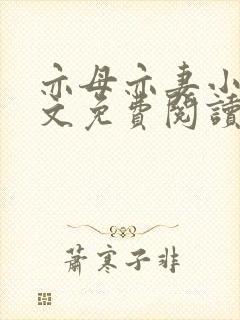 亦母亦妻小
文免費閱讀
蕭寒子非